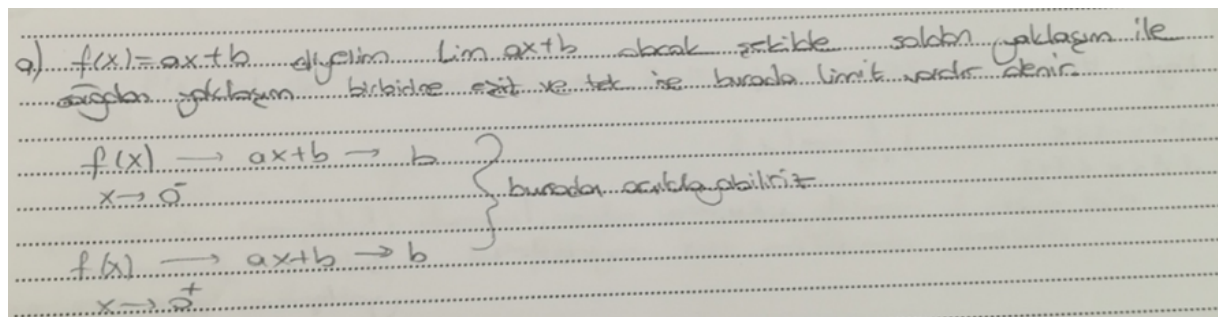 a) f(x)=ax+b diyelim Lim ax+b olacak şekilde soldan yaklaşım ile
sağdan yaklaşım birbirine eşit ve tek ise burada limit vardır denir.
f(x) → ax+b → b
x→0⁻
} buradan açıklayabiliriz
f(x) → ax+b → b
x→0⁺